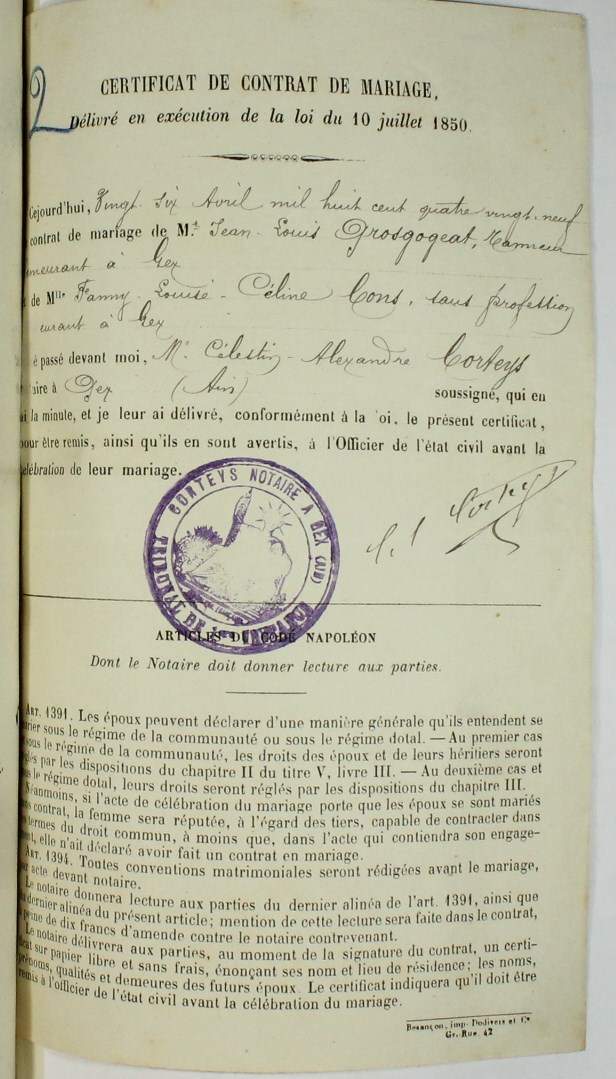 2
CERTIFICAT DE CONTRAT DE MARIAGE,
Délivré en exécution de la loi du 10 juillet 1850.
Cejourd'hui, Vingt-six Avril mil huit cent quatre vingt-neuf
contrat de mariage de Mr. Jean-Louis Grosgogeat, Tanneur
demeurant à Gex
de Mlle Fanny-Louise-Céline Cons, sans profession
eurant à Gex
é passé devant moi, Me Célestin-Alexandre Corteys
aire à Gex (Ain) soussigné, qui en
ai la minute, et je leur ai délivré, conformément à la loi, le présent certificat,
pour être remis, ainsi qu'ils en sont avertis, à l'Officier de l'état civil avant la
célébration de leur mariage.
CORTEYS NOTAIRE A GEX (AIN)
TRIBUNAL DE 1re
Corteys
ARTICLES DU CODE NAPOLÉON
Dont le Notaire doit donner lecture aux parties.
ART. 1391. Les époux peuvent déclarer d'une manière générale qu'ils entendent se
marier sous le régime de la communauté ou sous le régime dotal. — Au premier cas
et sous le régime de la communauté, les droits des époux et de leurs héritiers seront
réglés par les dispositions du chapitre II du titre V, livre III. — Au deuxième cas et
sous le régime dotal, leurs droits seront réglés par les dispositions du chapitre III.
Néanmoins, si l'acte de célébration du mariage porte que les époux se sont mariés
sans contrat, la femme sera réputée, à l'égard des tiers, capable de contracter dans
les termes du droit commun, à moins que, dans l'acte qui contiendra son engage-
ment, elle n'ait déclaré avoir fait un contrat en mariage.
ART. 1394. Toutes conventions matrimoniales seront rédigées avant le mariage,
par acte devant notaire.
Le notaire donnera lecture aux parties du dernier alinéa de l'art. 1391, ainsi que
du dernier alinéa du présent article; mention de cette lecture sera faite dans le contrat,
à peine de dix francs d'amende contre le notaire contrevenant.
Le notaire délivrera aux parties, au moment de la signature du contrat, un certi-
ficat sur papier libre et sans frais, énonçant ses nom et lieu de résidence; les noms,
prénoms, qualités et demeures des futurs époux. Le certificat indiquera qu'il doit être
remis à l'officier de l'état civil avant la célébration du mariage.
Besançon, imp. Dodivers et Ce
Gr. Rue, 42